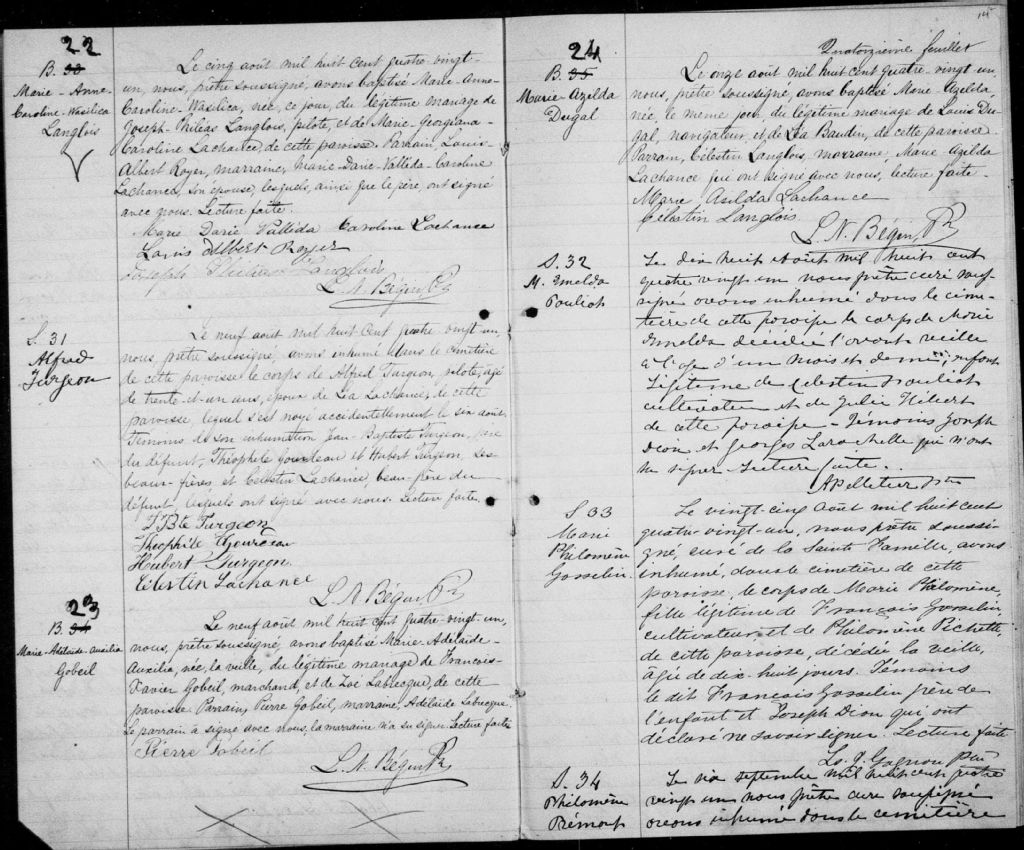 22
B. 33
Marie-Anne-
Caroline-Wasilica
Langlois
Le cinq août mil huit cent quatre-vingt-
un, nous, prêtre soussigné, avons baptisé Marie-Anne-
Caroline-Wasilica, née, ce jour, du légitime mariage de
Joseph-Philéas Langlois, pilote, et de Marie-Georgiana-
Caroline Lachance, de cette paroisse. Parrain, Louis-
Albert Royer, marraine, Marie-Darie-Valléda-Caroline
Lachance, son épouse, lesquels, ainsi que le père, ont signé
avec nous. Lecture faite.
Marie Darie Valléda Caroline Lachance
Louis Albert Royer
Joseph Philéas Langlois
L. N. Bégin Ptr
S. 31
Alfred
Turgeon
Le neuf août mil huit cent quatre vingt un,
nous, prêtre soussigné, avons inhumé dans le cimetière
de cette paroisse le corps de Alfred Turgeon, pilote, âgé
de trente-et-un ans, époux de Léa Lachance, de cette
paroisse, lequel s'est noyé accidentellement le six août.
Témoins de son inhumation Jean-Baptiste Turgeon, père
du défunt, Théophile Gourdeau et Hubert Turgeon, ses
beaux-frères et Célestin Lachance, beau-père du
défunt, lesquels ont signé avec nous. Lecture faite.
J Bte Turgeon
Théophile Gourdeau
Hubert Turgeon
Célestin Lachance
L. N. Bégin Ptr
23
B. 34
Marie-Adélaïde-Auxilia
Gobeil
Le neuf août mil huit cent quatre-vingt-un,
nous, prêtre soussigné, avons baptisé Marie-Adelaide-
Auxilia, née, la veille, du légitime mariage de François-
Xavier Gobeil, marchand, et de Zoé Labrecque, de cette
paroisse. Parrain, Pierre Gobeil, marraine, Adelaïde Labrecque.
Le parrain a signé avec nous, la marraine n'a su signer. Lecture faite
Pierre Gobeil
L. N. Bégin Ptr
Quatorzième feuillet
24
B. 35
Marie-Azilda
Dugal
Le onze août mil huit cent quatre-vingt un,
nous, prêtre soussigné, avons baptisé Marie-Azelda,
née, le même jour, du légitime mariage de Louis Du-
gal, navigateur, et de Léa Baudin, de cette paroisse.
Parrain, Célestin Langlois, marraine, Marie-Azilda
Lachance qui ont signé avec nous, lecture faite.
Marie Asilda Lachance
Célestin Langlois
L. N. Bégin Ptr
S. 32
M. Imelda
Pouliot
Le dix huit août mil huit cent
quatre vingt un nous prêtre curé sous-
signé avons inhumé dans le cime-
tière de cette paroisse le corps de Marie
Imelda décédée l'avant veille
à l'age d'un mois et demi, enfant
légitime de Célestin Pouliot
cultivateur et de Julie Hébert
de cette paroisse - Témoins Joseph
Dion et Georges Larochelle qui n'ont
su signer. Lecture faite.
A Pelletier Ptre
S 33
Marie
Philomène
Gosselin.
Le vingt-cinq août mil huit cent
quatre-vingt-un, nous prêtre soussi-
gné, curé de la Sainte Famille, avons
inhumé, dans le cimetière de cette
paroisse, le corps de Marie Philomène,
fille légitime de François Gosselin,
cultivateur, et de Philomène Pichette,
de cette paroisse, décédée la veille,
âgée de dix-huit jours. Témoins
le dit François Gosselin père de
l'enfant et Joseph Dion qui ont
déclaré ne savoir signer. Lecture faite
J. Gagnon Ptre
S. 34
Philomène
Le six septembre mil huit cent quatre
vingt un nous prêtre curé soussigné
avons inhumé dans le cimetière